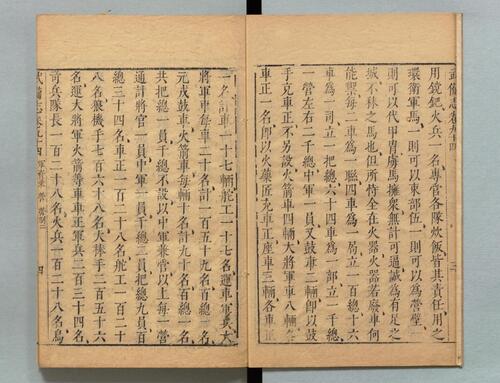 武備志卷九十四
三
用鏜鈀火兵一名專管各隊炊飯皆其責任用之
環衛軍馬一則可以束部伍一則可以為營壁一
則可以代甲冑虜馬擁衆無計可逼誠為有足之
城不秣之馬也但所恃全在火器火器若廢車何
能禦每二車為一聯四車為一局立一百總十六
車為一司立一把總六十四車為一部立一千總
一營左右二千總中軍一員又鼓車二輛即以鼓
手克車正不另設火箭車四輛大將軍車八輛各
車正一名即以火藥匠充車正座車三輛各車正
一名計車一十七輛舵工一十七名運車軍兵大
將軍車每輛二十名計一百五十九名百總一名
元戎鼓車火箭車每輛十名計九十名百總一名
共把總一名千總不設以中軍兼管以上每一營
通計將官一員中軍一員千總二員把總九員百
總三十四名車正一百二十八名舵工一百二十
八名狼機手七百六十八名大棒手二百五十六
名運大將軍火箭等車車正軍兵二百三十四名
奇兵隊長一百二十八名火兵一百二十八名鳥
武備志卷九十四 軍資乘 營
四